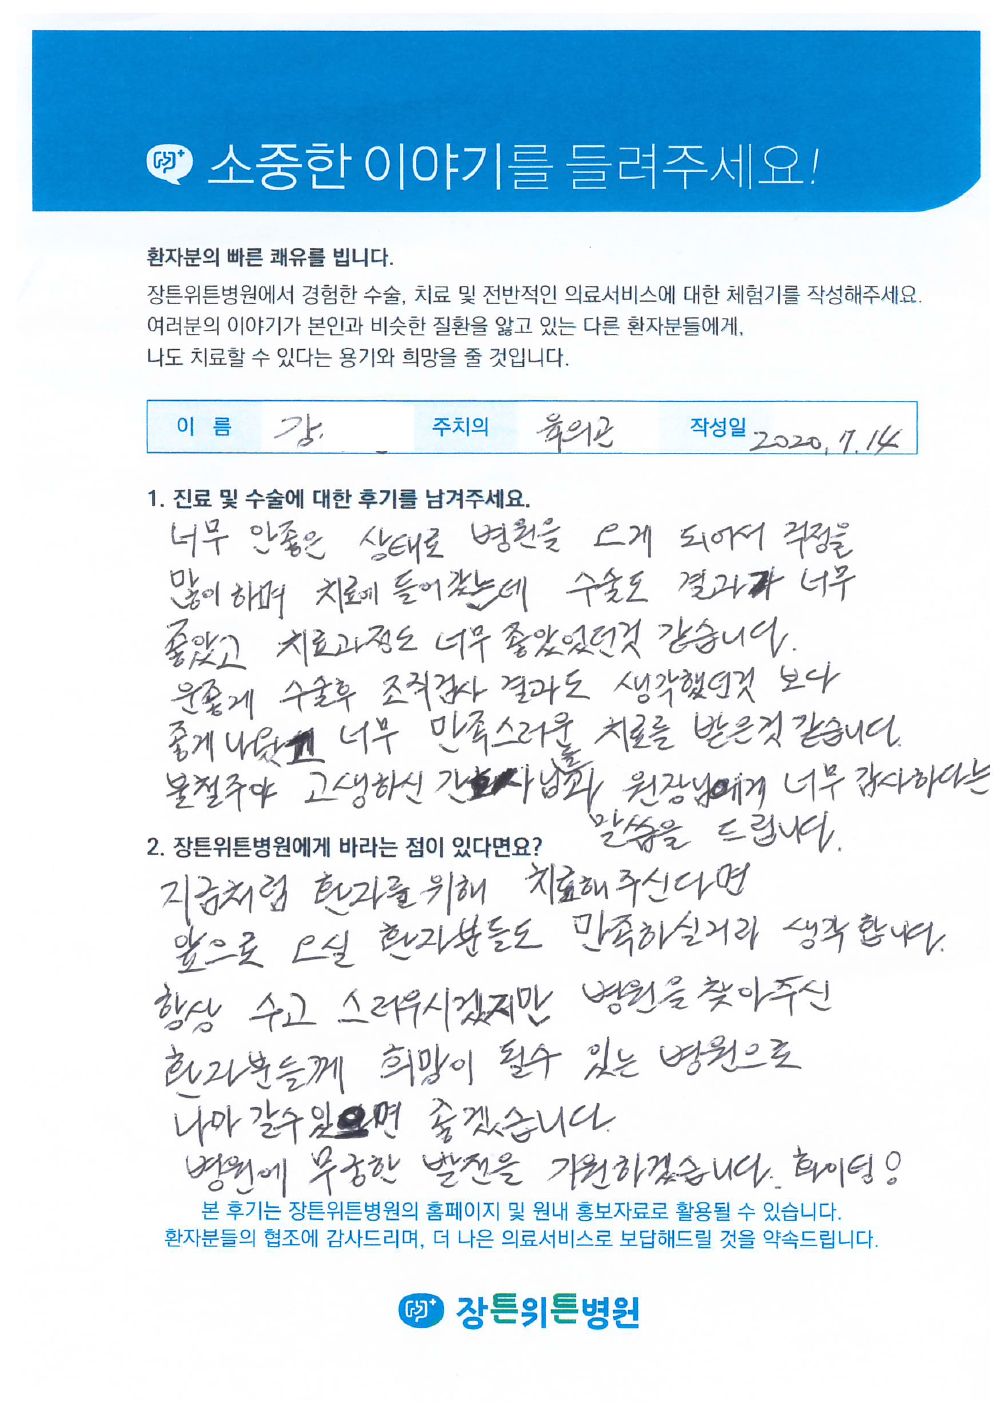 소중한 이야기를 들려주세요!
환자분의 빠른 쾌유를 빕니다.
장튼위튼병원에서 경험한 수술, 치료 및 전반적인 의료서비스에 대한 체험기를 작성해주세요.
여러분의 이야기가 본인과 비슷한 질환을 앓고 있는 다른 환자분들에게,
나도 치료할 수 있다는 용기와 희망을 줄 것입니다.
이 름 강. 주치의 육의곤 작성일 2020, 7. 14
1. 진료 및 수술에 대한 후기를 남겨주세요.
너무 안좋은 상태로 병원을 오게 되어서 걱정을
많이 하며 치료에 들어갔는데 수술도 결과가 너무
좋았고 치료과정도 너무 좋았었던것 같습니다.
운좋게 수술후 조직검사 결과도 생각했던것 보다
좋게 나왔고 너무 만족스러운 치료를 받은것 같습니다.
불철주야 고생하신 간호사님들과 원장님에게 너무 감사하다는
말씀을 드립니다.
2. 장튼위튼병원에게 바라는 점이 있다면요?
지금처럼 환자를 위해 치료해 주신다면
앞으로 오실 환자분들도 만족하실거라 생각 합니다.
항상 수고 스러우시겠지만 병원을 찾아주신
환자분들께 희망이 될수 있는 병원으로
나아 갈수있으면 좋겠습니다.
병원에 무궁한 발전을 기원하겠습니다. 화이팅!
본 후기는 장튼위튼병원의 홈페이지 및 원내 홍보자료로 활용될 수 있습니다.
환자분들의 협조에 감사드리며, 더 나은 의료서비스로 보답해드릴 것을 약속드립니다.
장튼위튼병원